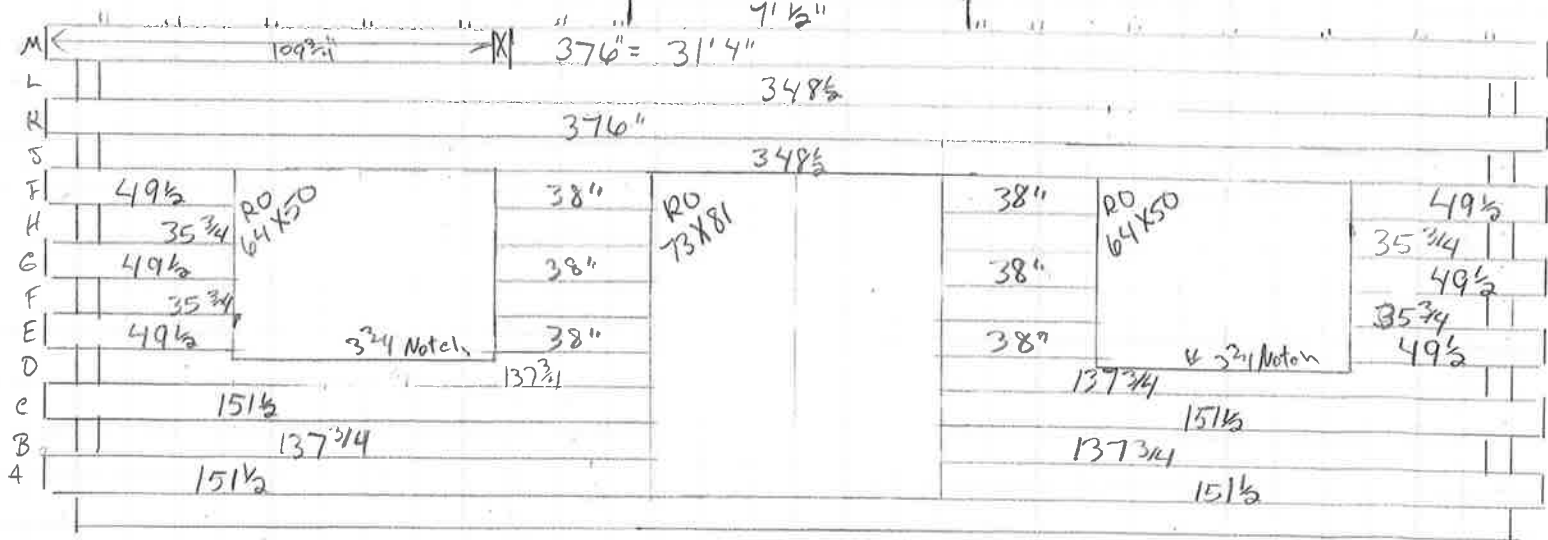 7' 1/2"
M 109 3/4" X 376" = 31' 4"
L 348 1/2
K 376"
J 348 1/2
I 49 1/2 RO 64X50 38" RO 73X81 38" RO 64X50 49 1/2
H 35 3/4 35 3/4
G 49 1/2 38" 38" 49 1/2
F 35 3/4 35 3/4
E 49 1/2 3 3/4 Notch 38" 38" 3 3/4 Notch 49 1/2
D 137 3/4 137 3/4
C 151 1/2 151 1/2
B 137 3/4 137 3/4
A 151 1/2 151 1/2